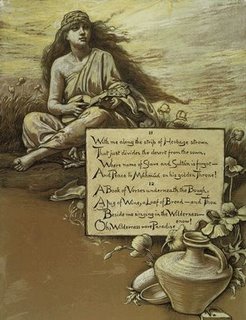 11
With me along the strip of Herbage strown
That just divides the desert from the sown,
Where name of Slave and Sultán is forgot—
And Peace to Mahmúd on his golden Throne!
12
A Book of Verses underneath the Bough,
A Jug of Wine, a Loaf of Bread—and Thou
Beside me singing in the Wilderness—
Oh, Wilderness were Paradise enow!